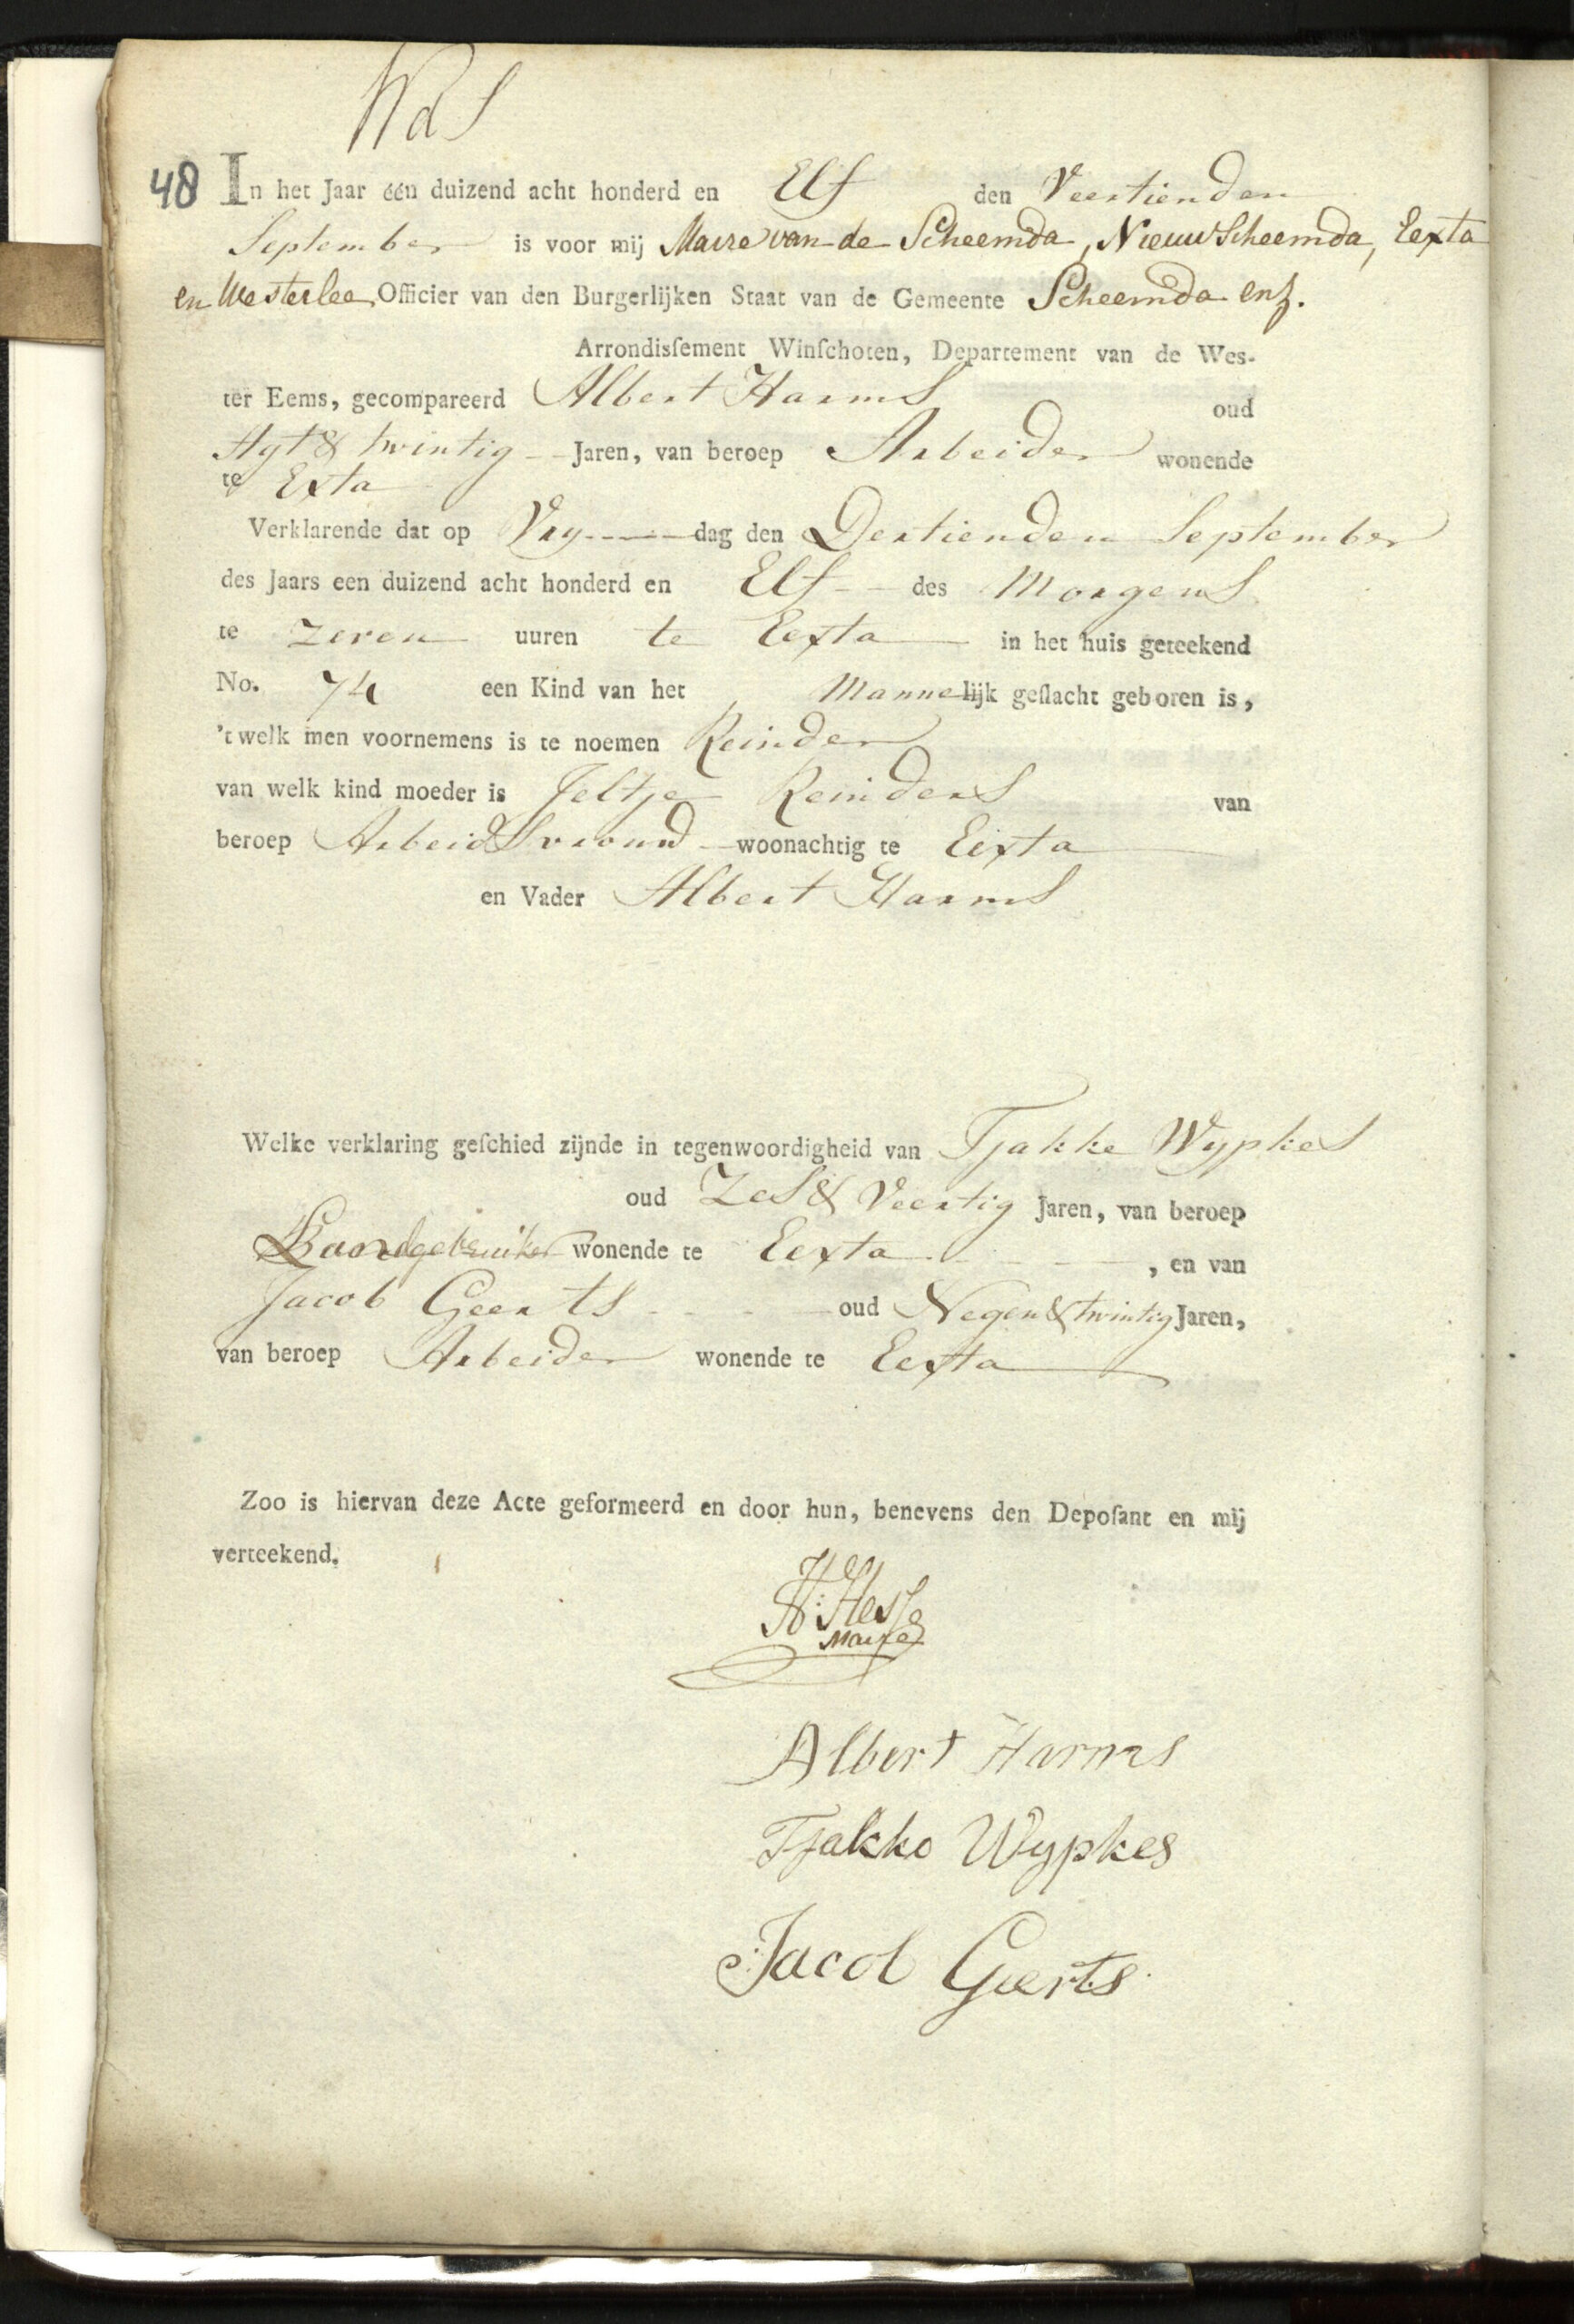 48 In het Jaar één duizend acht honderd en Elf den Veertienden
September is voor mij Maire van de Scheemda, Nieuw Scheemda, Eexta
en Westerlee Officier van den Burgerlijken Staat van de Gemeente Scheemda enz.
Arrondisſement Winſchoten, Departement van de Wes-
ter Eems, gecompareerd Albert Harms oud
Agt & twintig Jaren, van beroep Arbeider wonende
te Exta
Verklarende dat op Vry dag den Dertienden September
des Jaars een duizend acht honderd en Elf des Morgens
te zeven uuren te Eexta in het huis geteekend
No. 74 een Kind van het Mannelijk geſlacht geboren is,
't welk men voornemens is te noemen Reinder
van welk kind moeder is Jeltje Reinders van
beroep Arbeids vrouw woonachtig te Eexta
en Vader Albert Harms
Welke verklaring geſchied zijnde in tegenwoordigheid van Tjakke Wypkes
oud Zes & Veertig Jaren, van beroep
Landgebruiker wonende te Eexta, en van
Jacob Geerts oud Negen & twintig Jaren,
van beroep Arbeider wonende te Eexta
Zoo is hiervan deze Acte geformeerd en door hun, benevens den Depoſant en mij
verteekend.
H: Hesse
Maire
Albert Harms
Tjakko Wypkes
Jacob Geerts